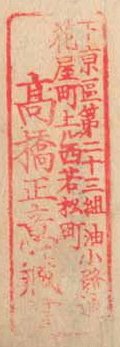 下京區第二十三組油小路通
花屋町上西若松町
髙橋正